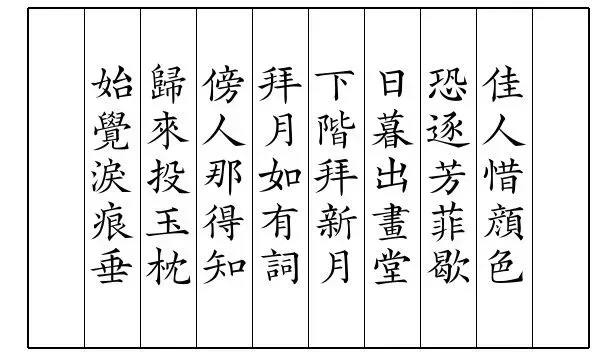 佳人惜顔色
恐逐芳菲歇
日暮出畫堂
下階拜新月
拜月如有詞
傍人那得知
歸來投玉枕
始覺淚痕垂